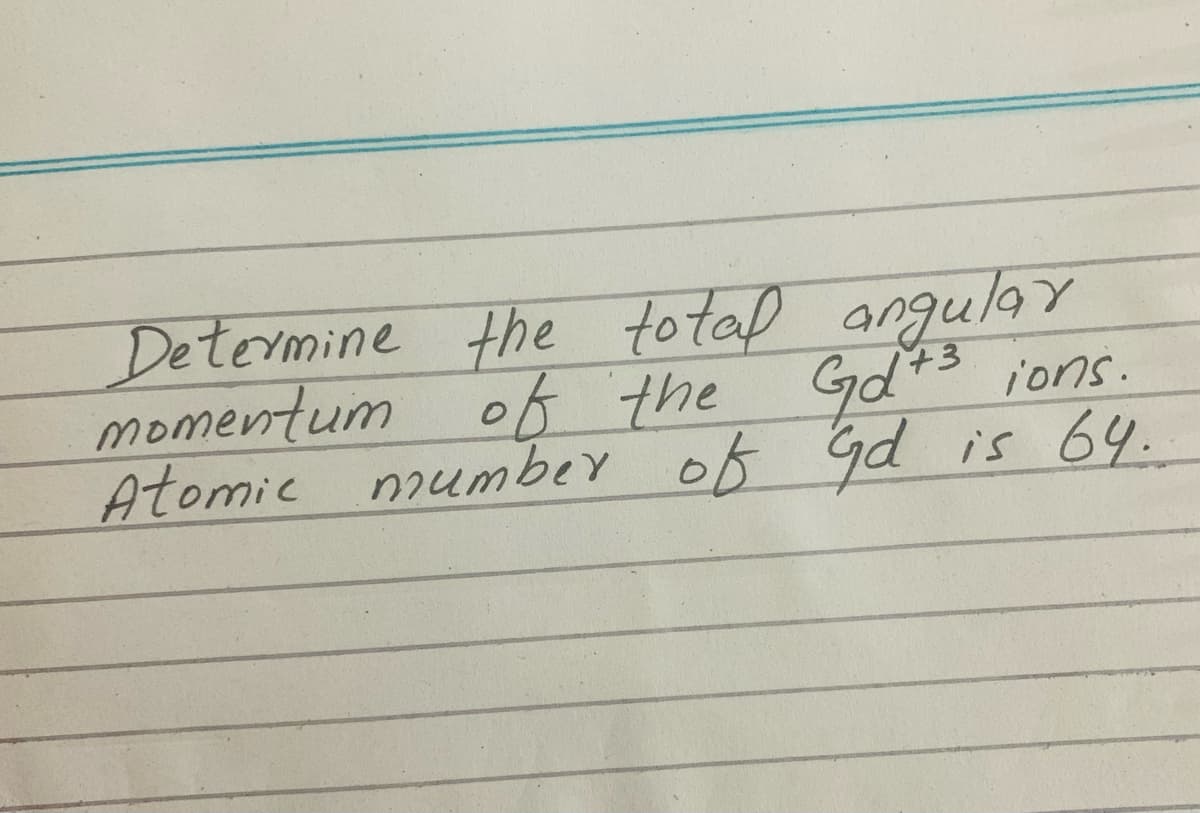 Determine the total angular
momentum of the Gd⁺³ ions.
Atomic number of Gd is 64.